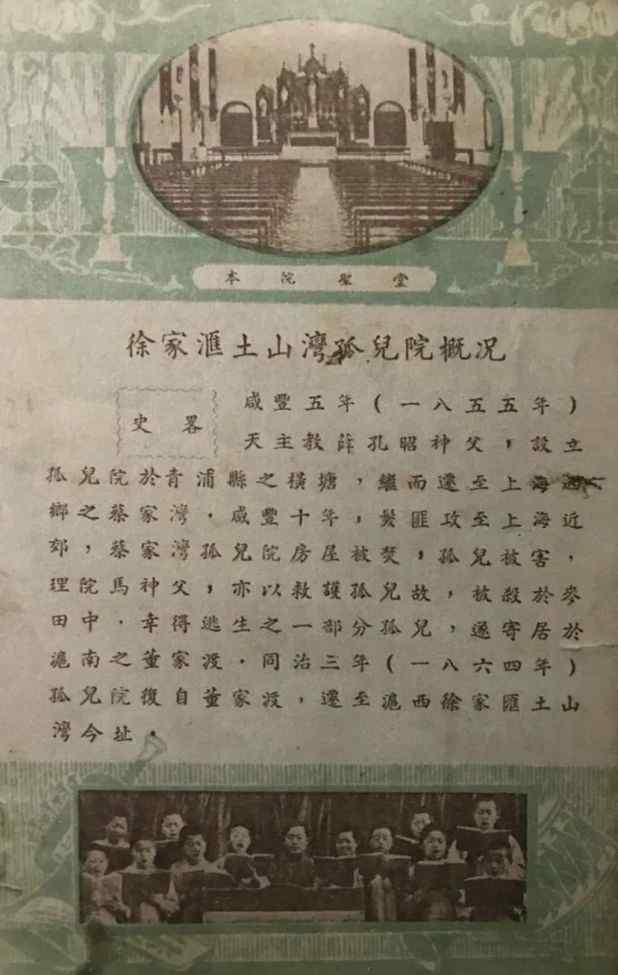 本院聖堂
徐家滙土山灣孤兒院概况
史畧
咸豐五年(一八五五年)
天主教薛孔昭神父,設立
孤兒院於青浦縣之橫塘,繼而遷至上海
鄉之蔡家灣.咸豐十年,髮匪攻至上海近
郊,蔡家灣孤兒院房屋被焚,孤兒被害,
理院馬神父,亦以救護孤兒故,被殺於麥
田中.幸得逃生之一部分孤兒,遂寄居於
滬南之董家渡.同治三年(一八六四年)
孤兒院復自董家渡,遷至滬西徐家匯土山
灣今址.